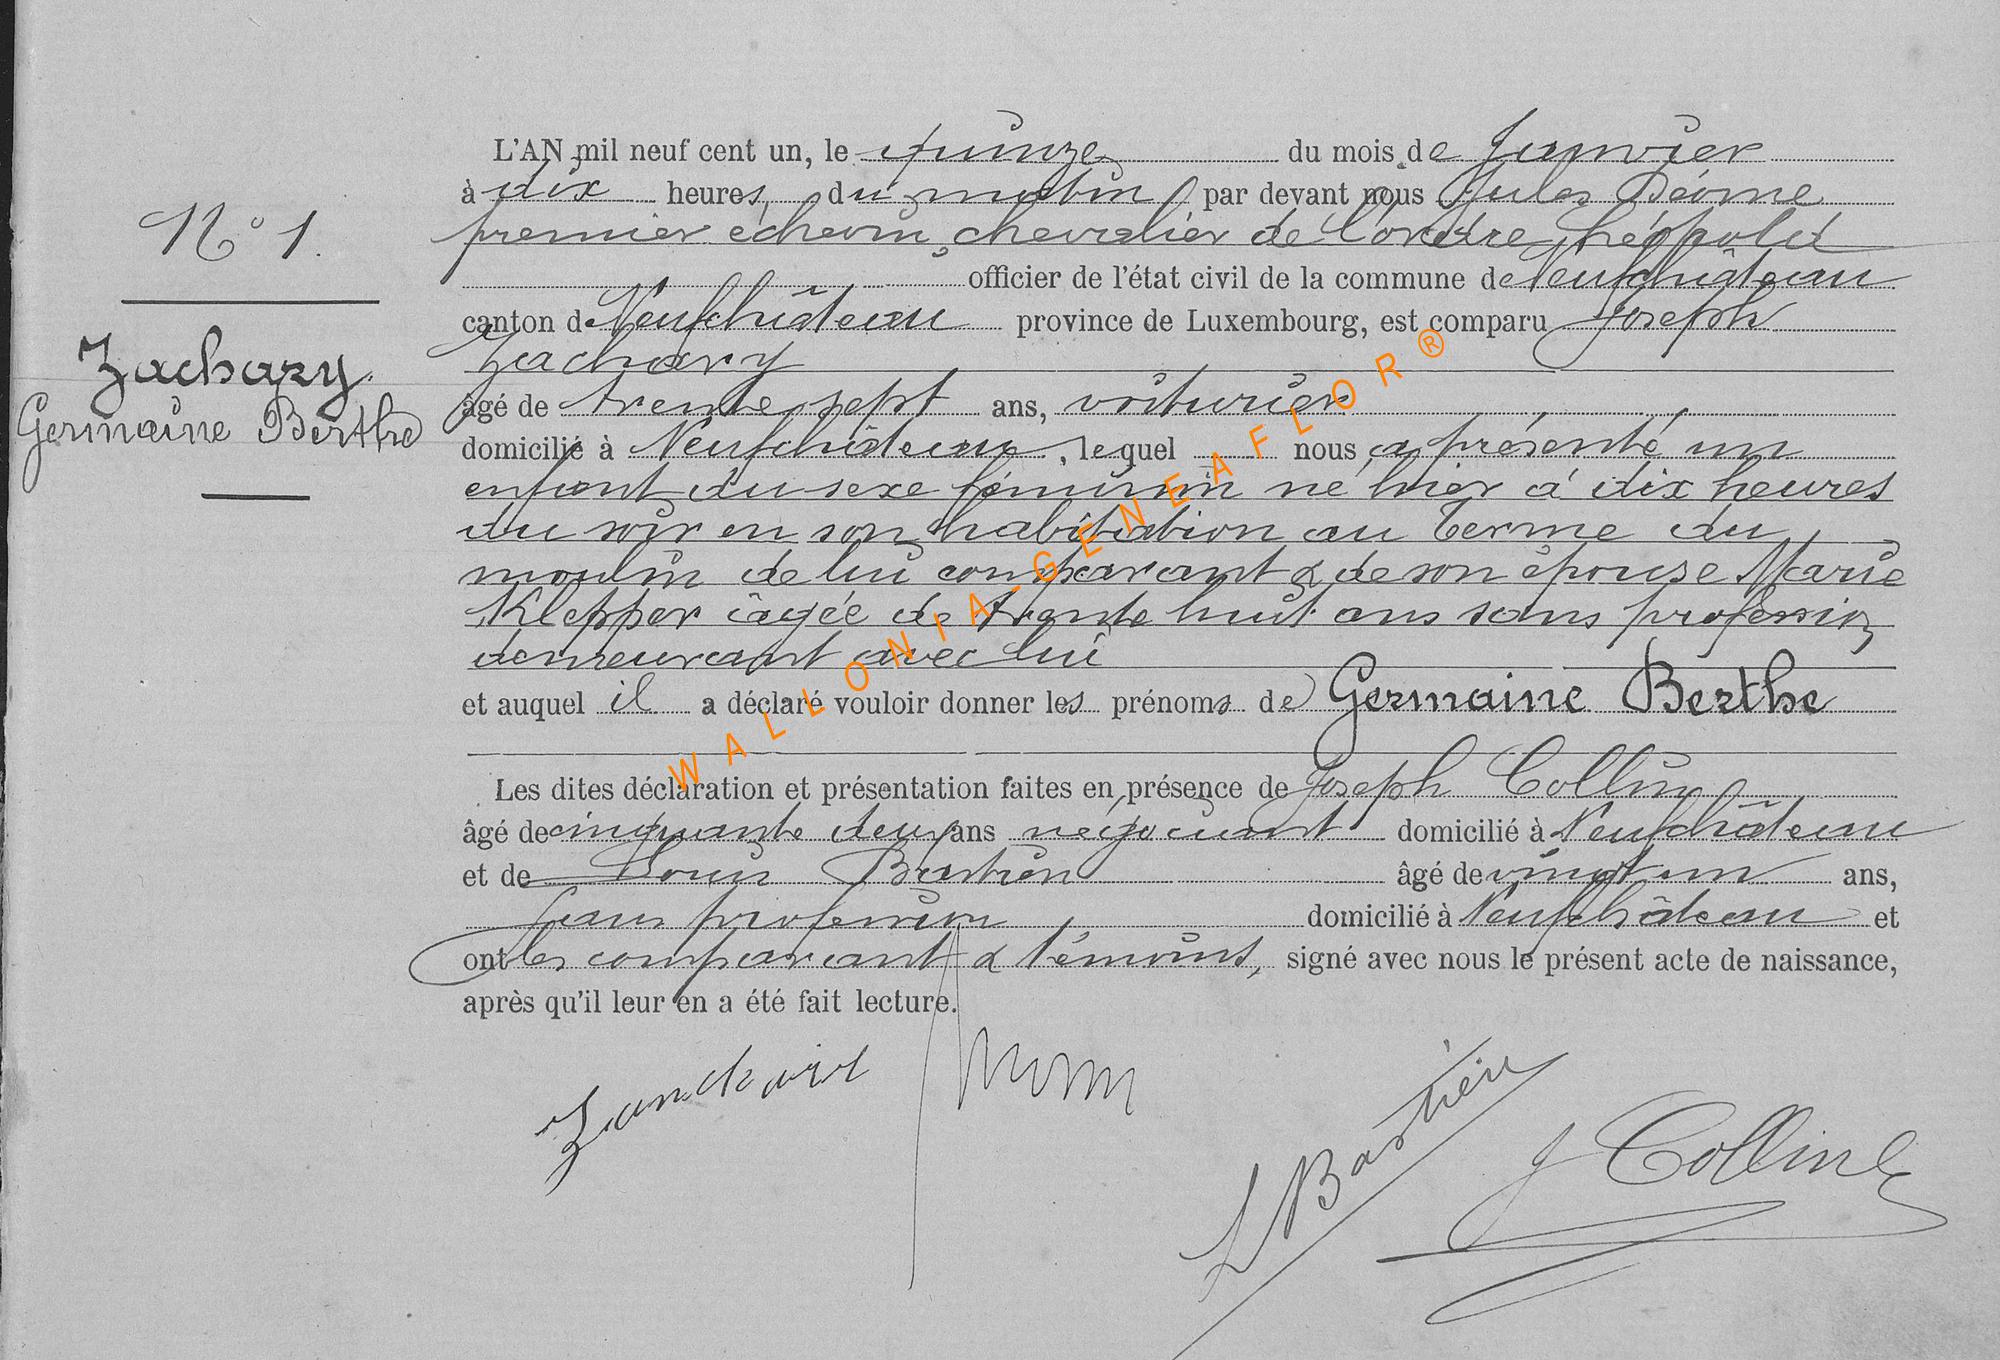 N° 1.
Zachary
Germaine Berthe
L'AN mil neuf cent un, le quinze du mois de Janvier
à dix heures, du matin par devant nous Jules
premier échevin, chevalier de l'ordre Léopold
officier de l'état civil de la commune de Neufchâteau
canton de Neufchâteau province de Luxembourg, est comparu Joseph
Zachary
âgé de trente sept ans, voiturier
domicilié à Neufchâteau, lequel nous a présenté un
enfant du sexe féminin né hier à dix heures
du soir en son habitation au Terme du
moulin de lui comparant & de son épouse Marie
Klepper âgée de trente huit ans sans profession
demeurant avec lui
et auquel il a déclaré vouloir donner les prénoms de Germaine Berthe
Les dites déclaration et présentation faites en présence de Joseph Collin
âgé de cinquante deux ans négociant domicilié à Neufchâteau
et de Louis Bastien âgé de vingt un ans,
sans profession domicilié à Neufchâteau et
ont les comparant & témoins, signé avec nous le présent acte de naissance,
après qu'il leur en a été fait lecture.
L Bastien
J Collin
WALLONIA-GENEAFLOR®